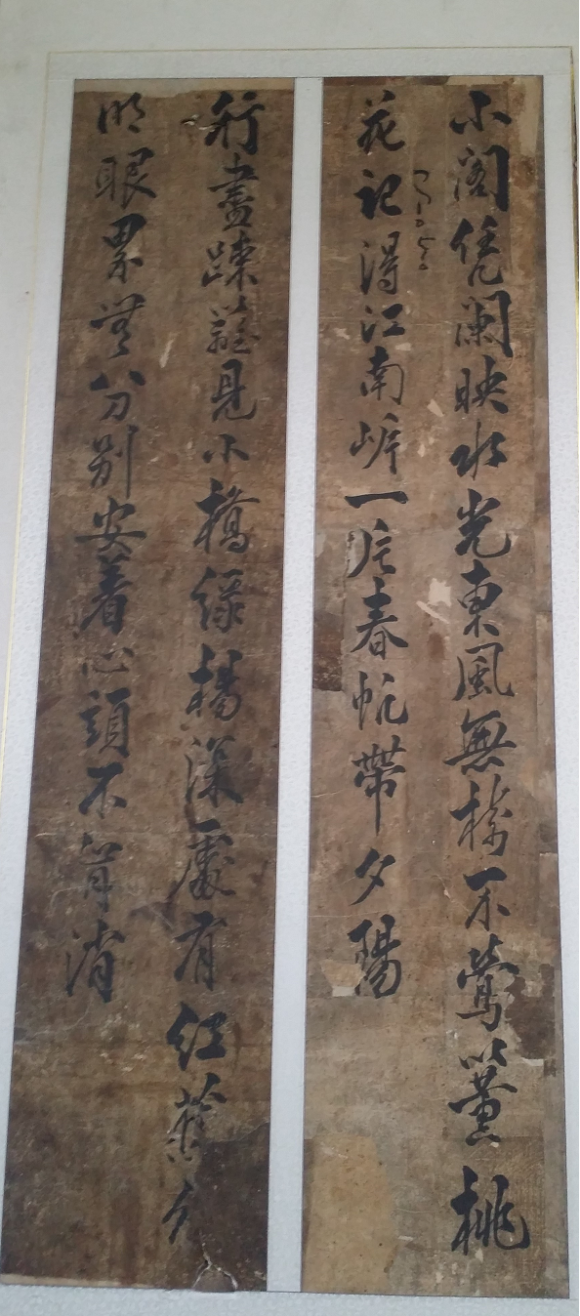 小閣凭闌映水光東風無樹不鶯簧桃
花記得江南岸一片春帆帶夕陽
行盡踈籬見小橋綠楊深處有紅蕉分
明眼界無分別安着心頭不肯消